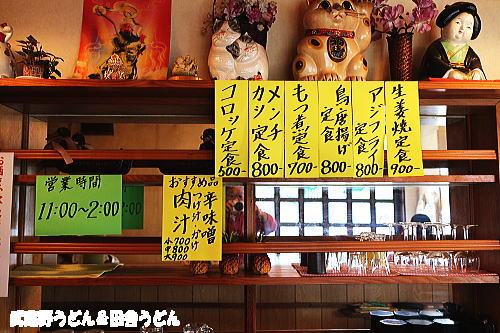 生姜焼定食
900-
アジフライ定食
800-
鳥唐揚げ定食
800-
もつ煮定食
700-
メンチカツ定食
800-
コロッケ定食
500-
営業時間
11:00~2:00
おすすめ品
辛味噌
つけ汁 かけ
肉汁
小700
中800
大900
武蔵野うどん&田舎うどん